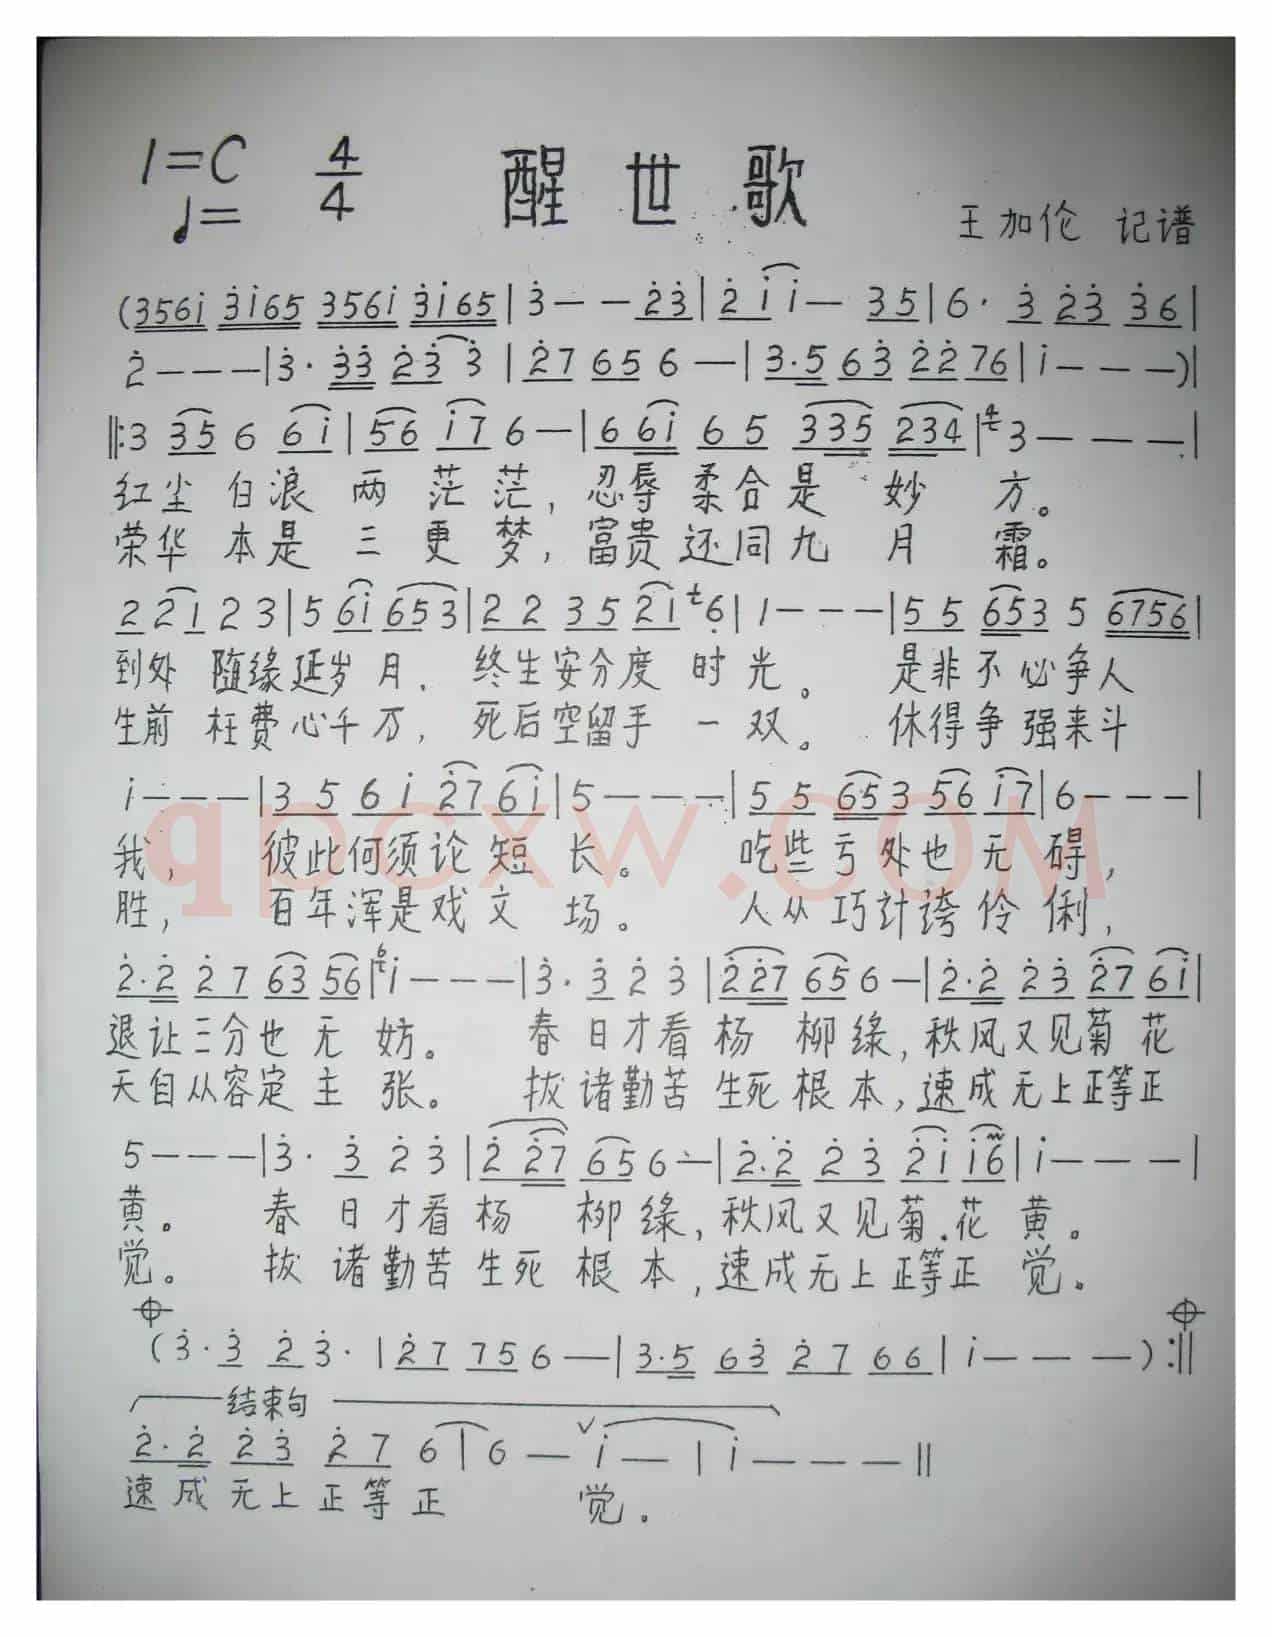 1=C 4/4 醒世歌
♩=
王加伦 记谱
(356i̇ 3̇i̇65 356i̇ 3̇i̇65|3̇——2̇3̇|2̇i̇i̇—35|6·3̇2̇3̇3̇6|
2̇———|3̇·3̇3̇2̇·3̇3̇|2̇7656—|3·563̇2̇2̇76|i̇———)|
‖:33566i̇|56i̇76—|66i̇65335234|⁴3———|
红尘白浪两茫茫,忍辱柔合是妙方。
荣华本是三更梦,富贵还同九月霜。
22123|56i̇653|223521 6̣|1———|5565356756|
到处随缘延岁月.终生安分度时光。是非不必争人
生前枉费心千万,死后空留手一双。休得争强来斗
i̇———|356i̇2̇76i̇|5———|5565356i̇7|6———|
qpcxw.COM
我,彼此何须论短长。吃些亏处也无碍,
胜,百年浑是戏文场。人从巧计誇伶俐,
2̇·2̇2̇76356|⁶i̇———|3̇·3̇2̇3̇|2̇2̇7656—|2̇·2̇2̇3̇2̇76i̇|
退让三分也无妨。春日才看杨柳绿,秋风又见菊花
天自从容定主张。拔诸勤苦生死根本,速成无上正等正
5———|3̇·3̇2̇3̇|2̇2̇7656—|2̇·2̇2̇3̇2̇i̇i̇6|i̇———|
黄。春日才看杨柳绿,秋风又见菊.花黄。
觉。拔诸勤苦生死根本,速成无上正等正觉。
(3̇·3̇2̇3̇·|2̇7756—|3·563̇2̇766|i̇———):‖
结束句
2̇·2̇2̇3̇2̇76|6—i̇—|i̇———‖
速成无上正等正觉。